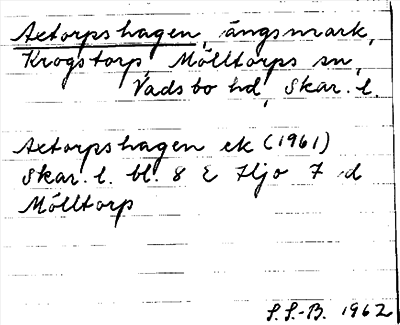 Axtorpshagen, ängsmark,
Krogstorp Mölltorps sn,
Vadsbo hd, Skar. l.
Axtorpshagen ek (1961)
Skar. l. bl. 8 E Hjo 7 d
Mölltorp
S.S.-B. 1962